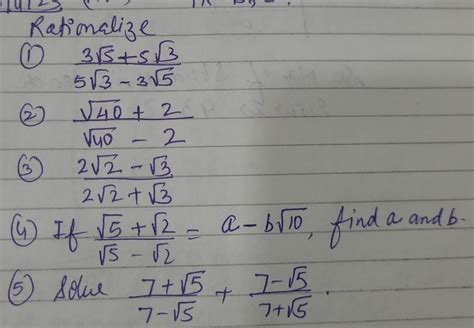 Rationalize
① (3√5 + 5√3)/(5√3 - 3√5)
② (√40 + 2)/(√40 - 2)
③ (2√2 - √3)/(2√2 + √3)
④ If (√5 + √2)/(√5 - √2) = a - b√10, find a and b.
⑤ Solve (7 + √5)/(7 - √5) + (7 - √5)/(7 + √5).